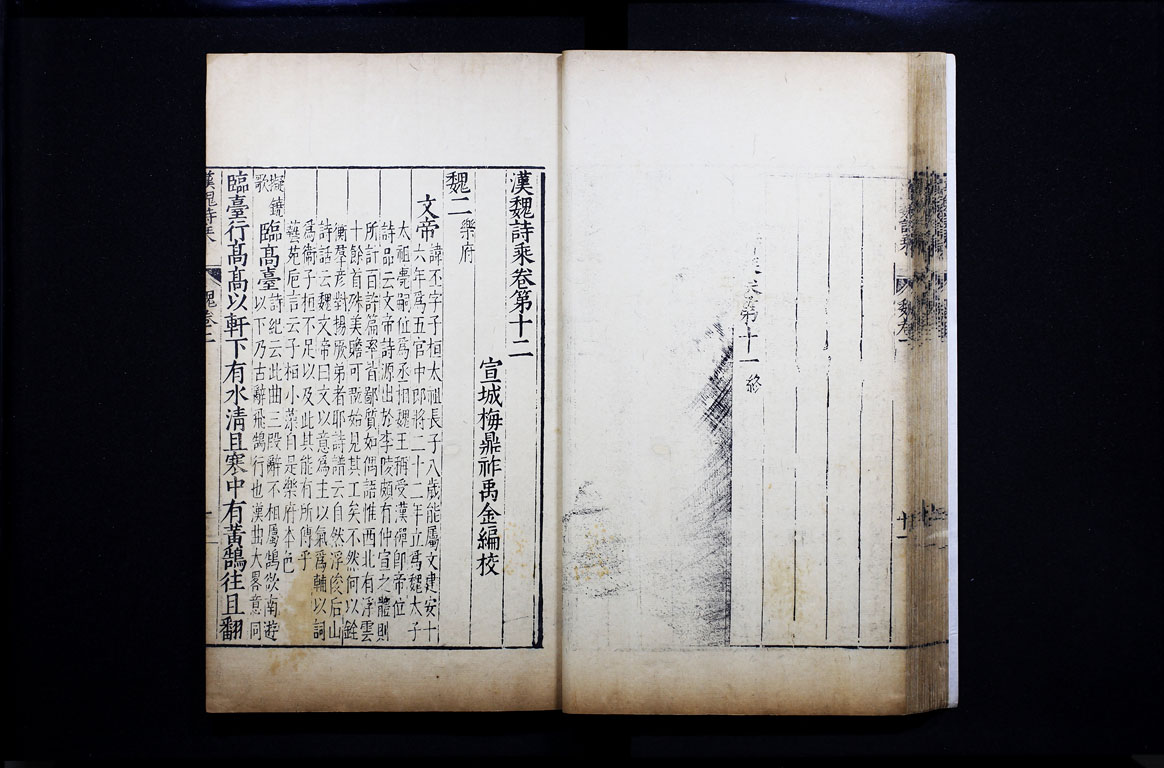 卷第十一終
魏卷一
十一
漢魏詩乘卷第十二
宣城梅鼎祚禹金編校
魏二樂府
文帝諱丕字子桓太祖長子八歲能屬文建安十
六年爲五官中郎將二十二年立爲魏太子
太祖薨嗣位爲丞相魏王稱受漢禪卽帝位
詩品云文帝詩源出於李陵頗有仲宣之體則
所計百許篇率皆鄙質如偶語惟西北有浮雲
十餘首殊美贍可翫始見其工矣不然何以銓
衡羣彥對揚厥弟者耶詩譜云自然浮俊后山
詩話云魏文帝曰文以意爲主以氣爲輔以詞
爲衞子桓不足以及此其能有所傳乎
藝苑巵言云子桓小藻自是樂府本色
擬鐃歌臨高臺詩紀云此曲三段辭不相屬鵠欲南遊
以下乃古辭飛鵠行也漢曲大畧意同
臨臺行高高以軒下有水清且寒中有黃鵠往且翻
漢魏詩乘
魏卷二